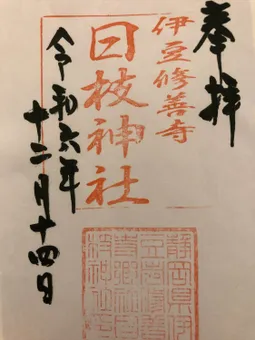 奉拝
伊豆修善寺
日枝神社
令和六年
十二月十四日